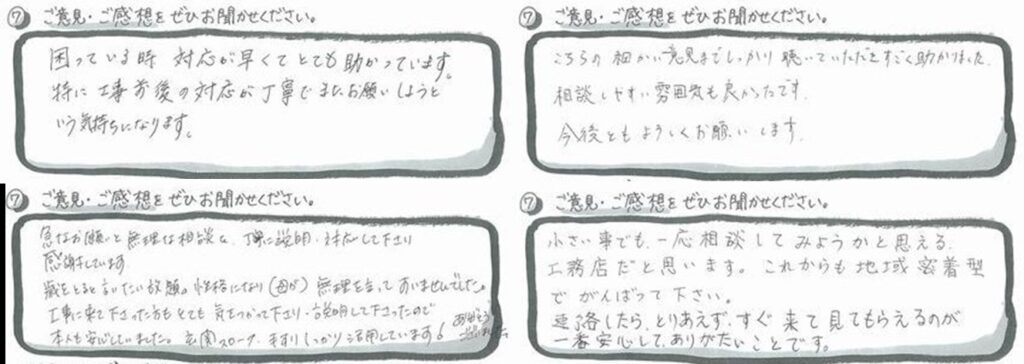 ⑦ ご意見・ご感想をぜひお聞かせください。
困っている時 対応が早くてとても助かっています。
特に工事前後の対応が丁寧でまたお願いしようと
いう気持ちになります。
⑦ ご意見・ご感想をぜひお聞かせください。
こちらの細かい意見までしっかり聴いていただきすごく助かりました。
相談しやすい雰囲気も良かったです。
今後ともよろしくお願いします。
⑦ ご意見・ご感想をぜひお聞かせください。
急なお願いと無理な相談を、丁寧に説明・対応して下さり
感謝しています
歳をとると言いたい放題の性格になり(母が)無理を言ってすいませんでした。
工事に来て下さった方もとても気をつかって下さり・説明して下さったので
本人も安心していました。玄関スロープ、手すりしっかり活用しています!
ありがとう
ございました
⑦ ご意見・ご感想をぜひお聞かせください。
小さい事でも、一応相談してみようかと思える、
工務店だと思います。これからも地域密着型
でがんばって下さい。
連絡したら、とりあえず、すぐ来て見てもらえるのが
一番安心して、ありがたいことです。